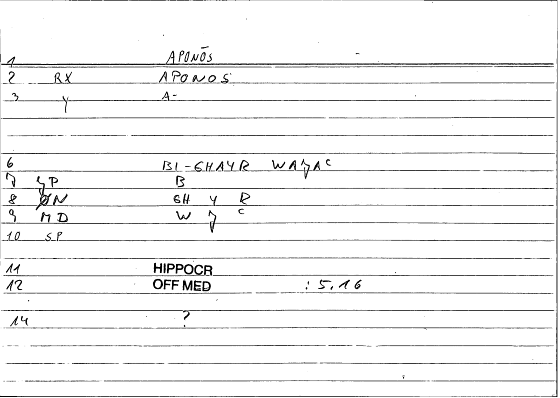 1 APONŌS
2 RX APONOS
3 Y A-
6 BI-GHAYR WAJAC
7 YP B
8 ØN GH Y R
9 MD W J C
10 SP
11 HIPPOCR
12 OFF MED : 5,16
14 ?